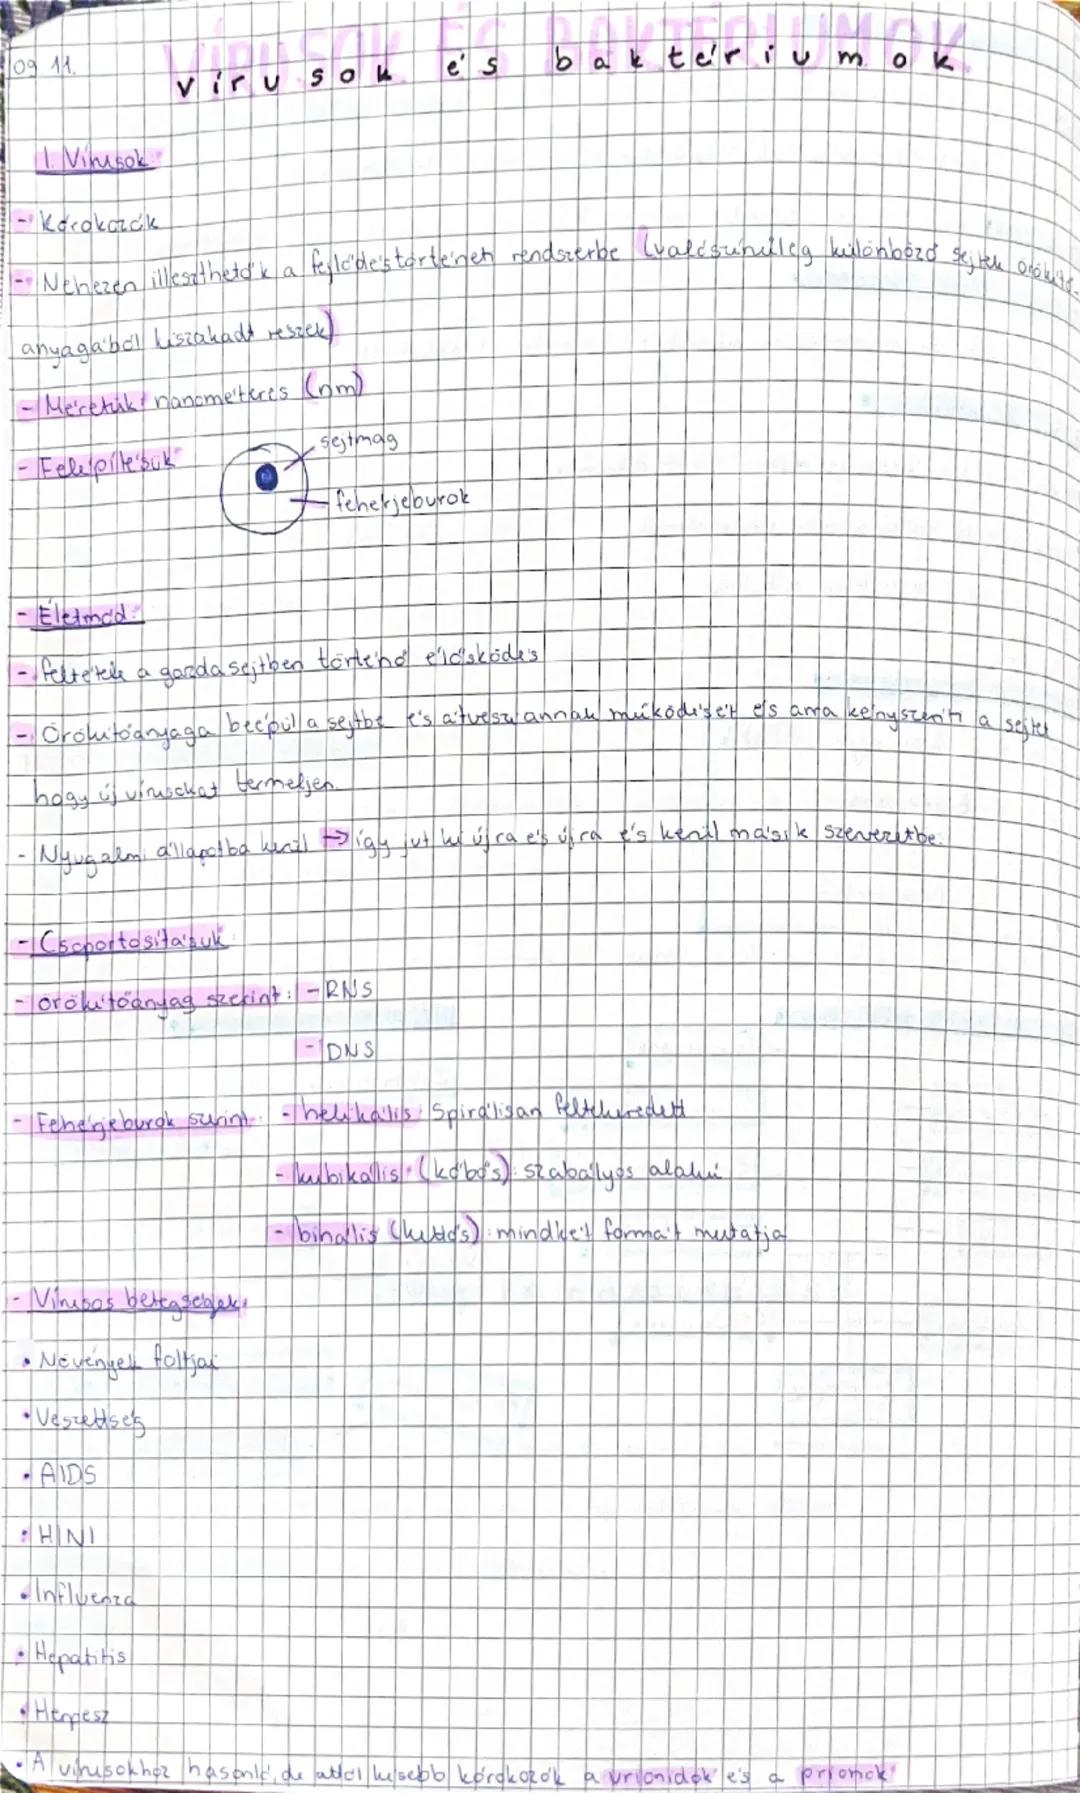 VÍRUSOK ÉS BAKTÉRIUMOK
09 11.
vírusok és baktériumok
1. Vírusok:
- Kórokozók
- Nehezen illeszthetők a fejlődéstörténeti rendszerbe (valószínűleg különböző sejtek örökítő-
anyagából kiszakadt részek)
- Méretük: nanométeres (nm)
- Felépítésük:
sejtmag
fehérjeburok
- Életmód:
- feltétele a gazdasejtben történő élősködés
- Örökítőanyaga beépül a sejtbe és átveszi annak működését és arra kényszeríti a sejtet
hogy új vírusokat termeljen.
- Nyugalmi állapotba kerül → így jut ki újra és újra és kerül másik szervezetbe.
- Csoportosításuk:
- örökítőanyag szerint: - RNS
- DNS
- Fehérjeburok szerint: - helikális: Spirálisan feltekeredett
- kubikális: (köbös): szabályos alakú
- binális (kettős): mindkét formát mutatja
- Vírusos betegségek:
• Növények foltjai
• Veszettség
• AIDS
• H1N1
• Influenza
• Hepatitis
• Herpesz
• A vírusokhoz hasonló, de attól kisebb kórokozók a virionidok és a prionok